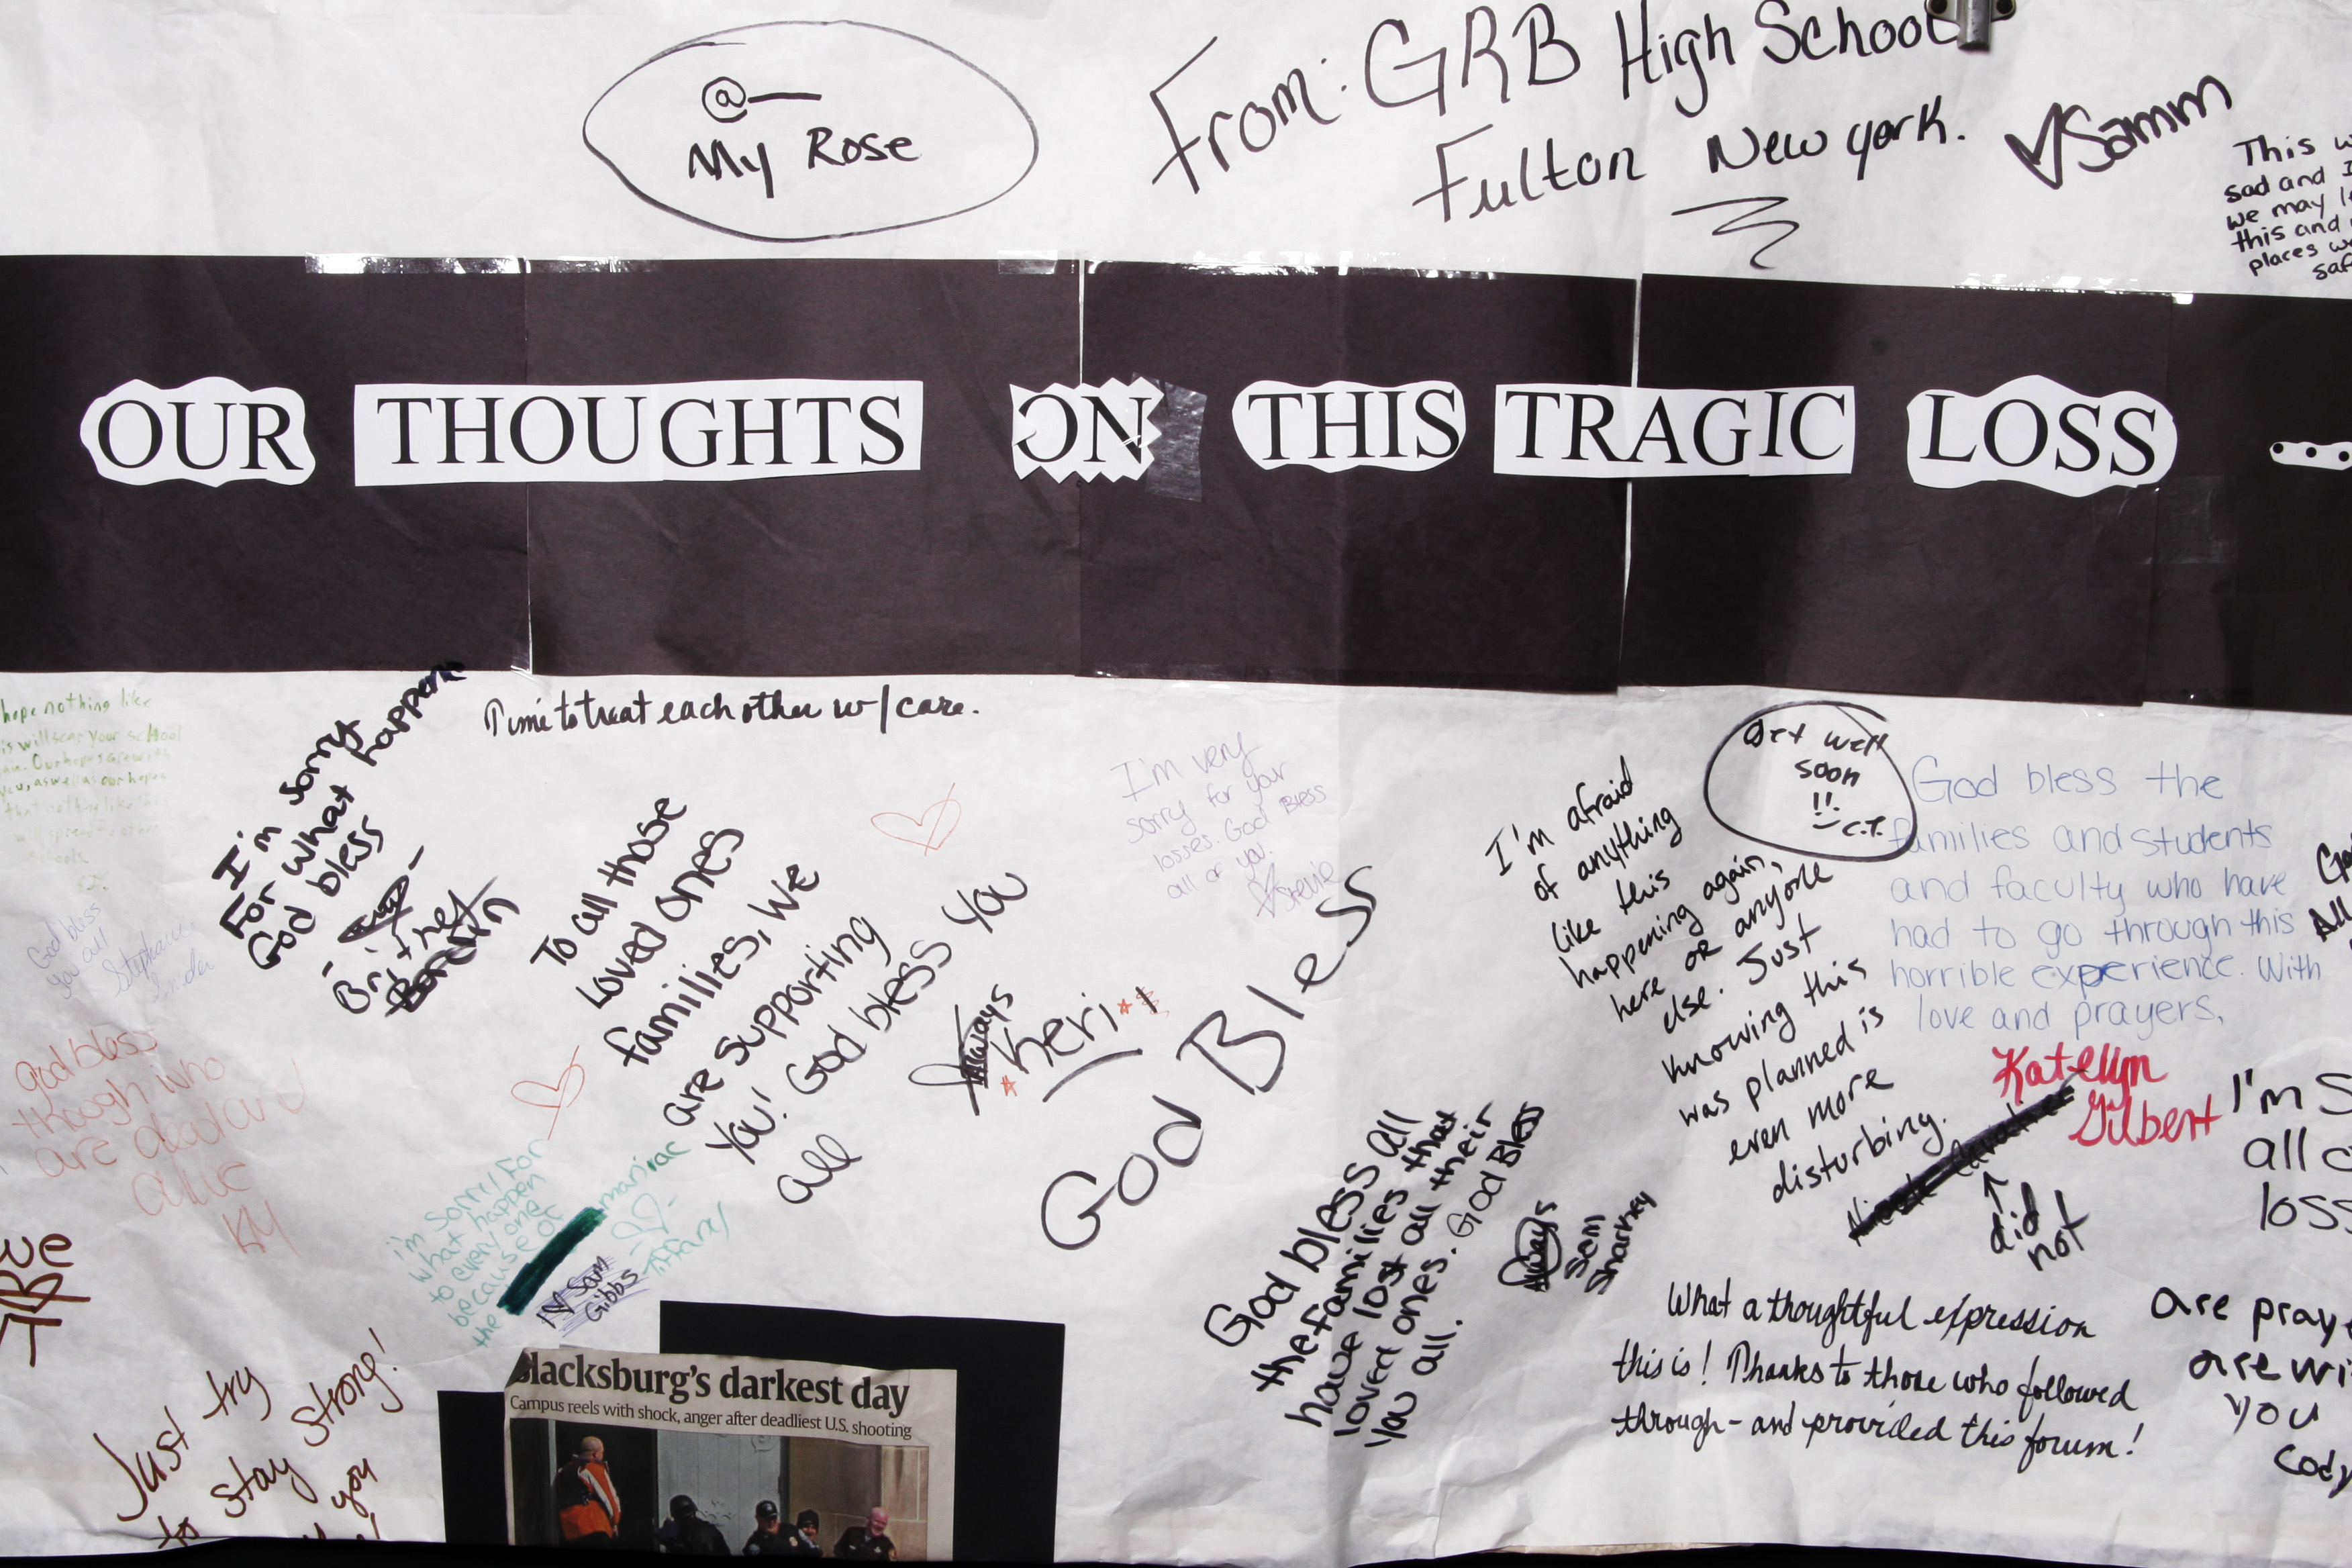 @—
My Rose
From: GRB High School
Fulton New York.
♡Samm
This
sad and I
we may
this and
places
OUR THOUGHTS ON THIS TRAGIC LOSS ...
hope nothing like
is will scar your school
Our hopes are with
you, as well as our hopes
that nothing like this
will spread to other
schools.
I'm sorry
For what happen
God bless
Britney
Time to treat each other w/ care.
God bless
you all
Stephanie
god bless
though who
are dead and
alive
KY
To all those
loved ones
families, We
are supporting
You! God bless You
all
Always
Keri
I'm very
sorry for your
losses. God Bless
all of you.
♡Stevie
God Bless
i'm Sorry For
what happen
to everyone
because of
the maniac
Tiffany
I ♡ Sam
Gibbs
Just try
to stay strong!
you
God bless all
the families that
have lost all their
loved ones. God Bless
You all.
Always
Sam
Sharkey
I'm afraid
of anything
like this
happening again,
here or anyone
else. Just
knowing this
was planned is
even more
disturbing.
did
not
Get well
soon
!!
-C.T.
God bless the
families and students
and faculty who have
had to go through this
horrible experience. With
love and prayers,
Katelyn
Gilbert
I'm
all
loss
What a thoughtful expression
this is! Thanks to those who followed
through - and provided this forum!
are
are
you
Cody
Blacksburg's darkest day
Campus reels with shock, anger after deadliest U.S. shooting